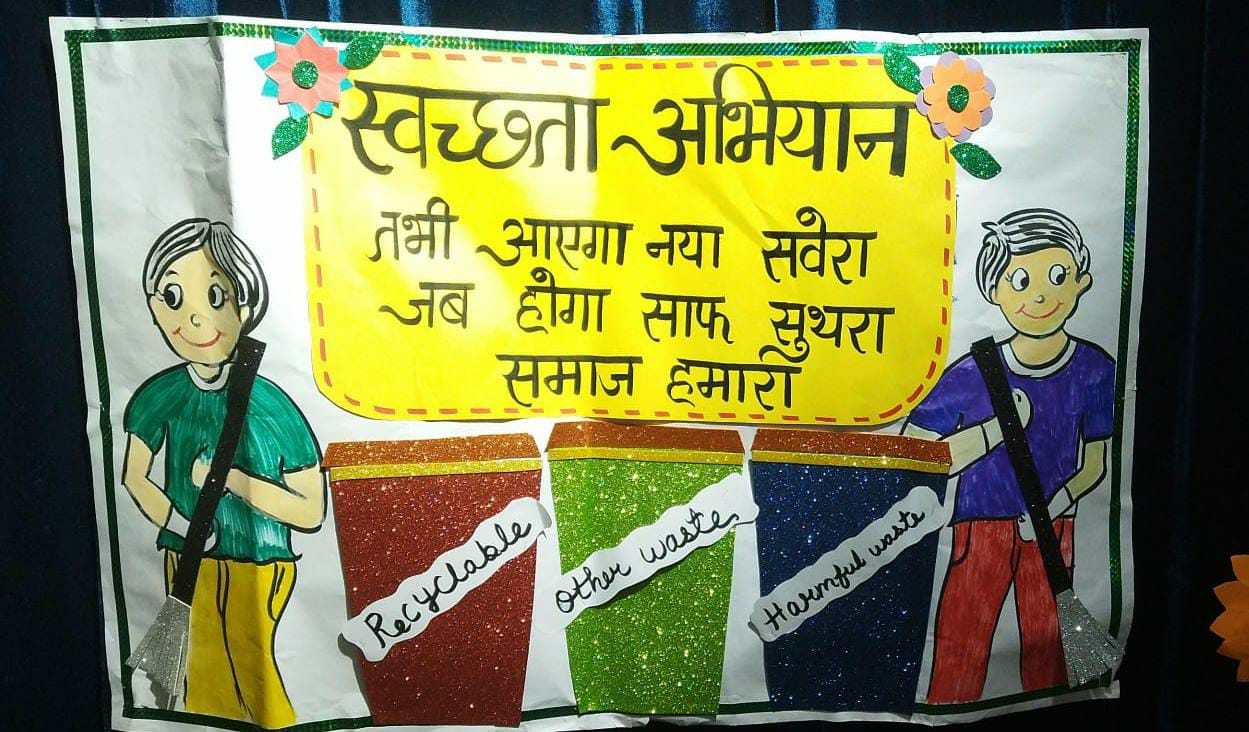 स्वच्छता अभियान
तभी आएगा नया सवेरा
जब होगा साफ सुथरा
समाज हमारा
Recyclable
other waste
Harmful waste